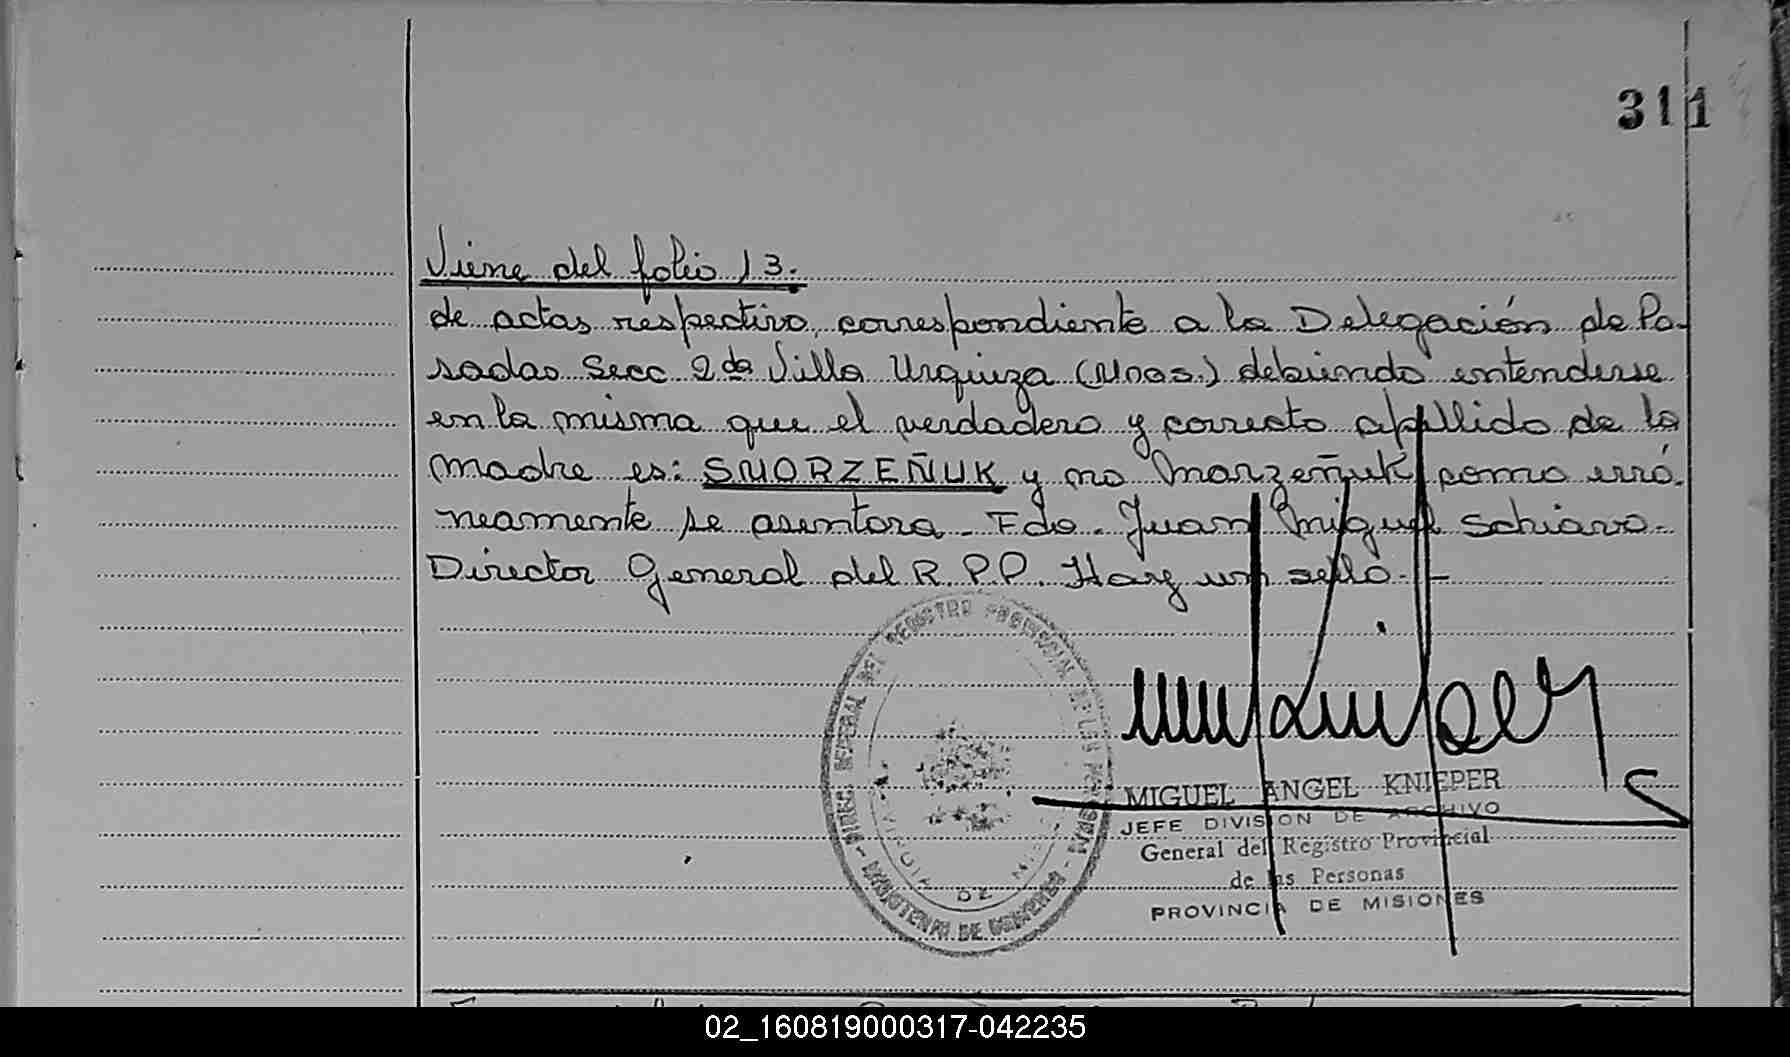 311
Viene del folio 13.
de actas respectivo, correspondiente a la Delegación de Po-
sadas Secc 2da Villa Urquiza (Mnes.) debiendo entenderse
en la misma que el verdadero y correcto apellido de la
madre es: SMORZEÑUK y no Morzeñuk como erró-
neamente se asentara. Fdo. Juan Miguel Schiavo-
Director General del R.P.P. Hay un sello.-
MIGUEL ANGEL KNIEPER
JEFE DIVISION DE ARCHIVO
General del Registro Provincial
de las Personas
PROVINCIA DE MISIONES
DEL REGISTRO PROVINCIAL DE LAS
PROVINCIA DE
02_160819000317-042235